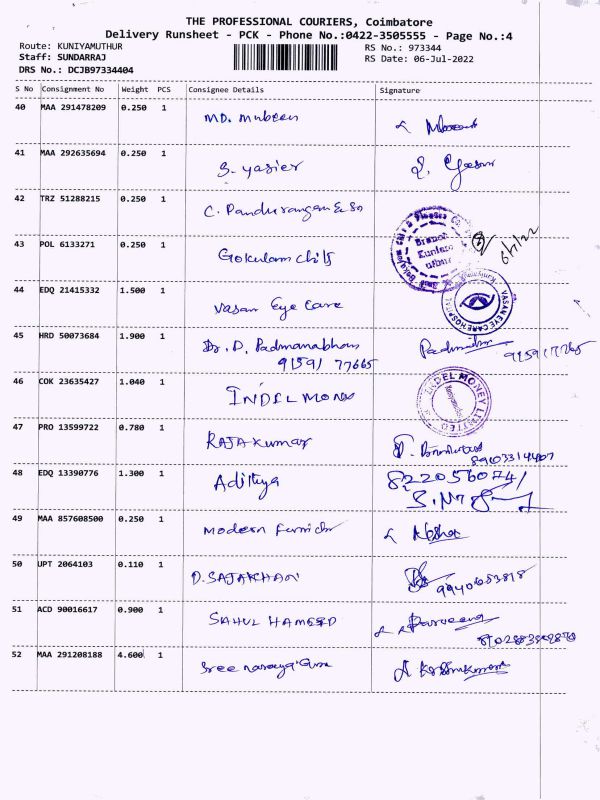 THE PROFESSIONAL COURIERS, Coimbatore
Delivery Runsheet - PCK - Phone No.:0422-3505555 - Page No.:4
Route: KUNIYAMUTHUR RS No.: 973344
Staff: SUNDARRAJ RS Date: 06-Jul-2022
DRS No.: DCJB97334404
S No Consignment No Weight PCS Consignee Details Signature
40 MAA 291478209 0.250 1
MD. Mubeen
41 MAA 292635694 0.250 1
S. yasier
42 TRZ 51288215 0.250 1
C. Pandurangan & Sn
43 POL 6133271 0.250 1
Gokulam chits
6/7/22
44 EDQ 21415332 1.500 1
Vasan Eye Care
VASAN EYE CARE HOSPITAL
45 HRD 50073684 1.900 1
Dr. D. Padmanabhan
91591 77665 9159177665
46 COK 23635427 1.040 1
INDEL MONEY
INDEL MONEY LIMITED
47 PRO 13599722 0.780 1
RAJA Kumar
48 EDQ 13390776 1.300 1
Adithya
8220560741
49 MAA 857608500 0.250 1
Modern Furnichr
50 UPT 2064103 0.110 1
D. SAJAKHAN
9940653818
51 ACD 90016617 0.900 1
SAHUL HAMEED
52 MAA 291208188 4.600 1
Sree